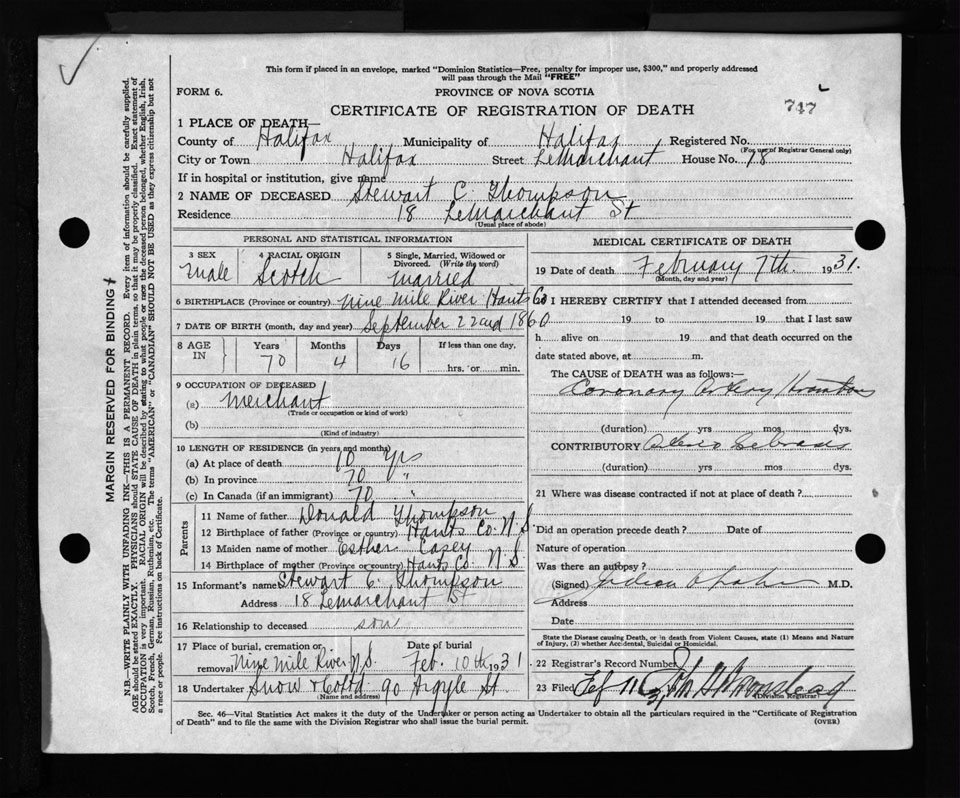 This form if placed in an envelope, marked "Dominion Statistics—Free, penalty for improper use, $300," and properly addressed
will pass through the Mail "FREE"
FORM 6.
PROVINCE OF NOVA SCOTIA
CERTIFICATE OF REGISTRATION OF DEATH
747
1 PLACE OF DEATH—
County of Halifax Municipality of Halifax Registered No.
(For use of Registrar General only)
City or Town Halifax Street LeMarchant House No. 18
If in hospital or institution, give name
2 NAME OF DECEASED Stewart C. Thompson
Residence 18 LeMarchant St
(Usual place of abode)
MARGIN RESERVED FOR BINDING
N.B.—WRITE PLAINLY WITH UNFADING INK—THIS IS A PERMANENT RECORD. Every item of information should be carefully supplied.
AGE should be stated EXACTLY. PHYSICIANS should STATE CAUSE OF DEATH in plain terms, so that it may be properly classified. Exact statement of
OCCUPATION is very important. RACIAL ORIGIN will be described by stating to what people or race the deceased person belonged, whether English, Irish,
Scotch, French, German, Russian, Ruthenian, etc. The terms "AMERICAN" or "CANADIAN" SHOULD NOT BE USED as they express citizenship but not
a race or people. Fee instructions on back of Certificate.
PERSONAL AND STATISTICAL INFORMATION
3 SEX 4 RACIAL ORIGIN 5 Single, Married, Widowed or
Divorced. (Write the word)
Male Scotch Married
6 BIRTHPLACE (Province or country) Nine Mile River Hants Co
7 DATE OF BIRTH (month, day and year) September 22nd 1860
8 AGE IN Years Months Days If less than one day,
70 4 16 hrs. or min.
9 OCCUPATION OF DECEASED
(a) Merchant
(Trade or occupation or kind of work)
(b)
(Kind of industry)
10 LENGTH OF RESIDENCE (in years and months)
(a) At place of death 10 yrs
(b) In province 70 "
(c) In Canada (if an immigrant) 70 "
Parents
11 Name of father Donald Thompson
12 Birthplace of father (Province or country) Hants Co. N.S.
13 Maiden name of mother Esther Casey
14 Birthplace of mother (Province or country) Hants Co. N.S
15 Informant's name Stewart C. Thompson
Address 18 LeMarchant St
16 Relationship to deceased son
17 Place of burial, cremation or Date of burial
removal Nine Mile River N.S. Feb. 10th 1931
18 Undertaker Snow & Co Ltd 90 Argyle St.
(Name and address)
MEDICAL CERTIFICATE OF DEATH
19 Date of death February 7th. 1931.
(Month, day and year)
I HEREBY CERTIFY that I attended deceased from
19 to 19 that I last saw
h alive on 19 and that death occurred on the
date stated above, at m.
The CAUSE of DEATH was as follows:—
Coronary Artery
(duration) yrs mos. dys.
CONTRIBUTORY
(duration) yrs mos. dys.
21 Where was disease contracted if not at place of death?
Did an operation precede death? Date of
Nature of operation
Was there an autopsy?
(Signed) M.D.
Address
Date
State the Disease causing Death, or in death from Violent Causes, state (1) Means and Nature
of Injury, (2) whether Accidental, Suicidal or Homicidal.
22 Registrar's Record Number
23 Filed Feb 11
(Division Registrar)
Sec. 46—Vital Statistics Act makes it the duty of the Undertaker or person acting as Undertaker to obtain all the particulars required in the "Certificate of Registration
of Death" and to file the same with the Division Registrar who shall issue the burial permit.
(OVER)